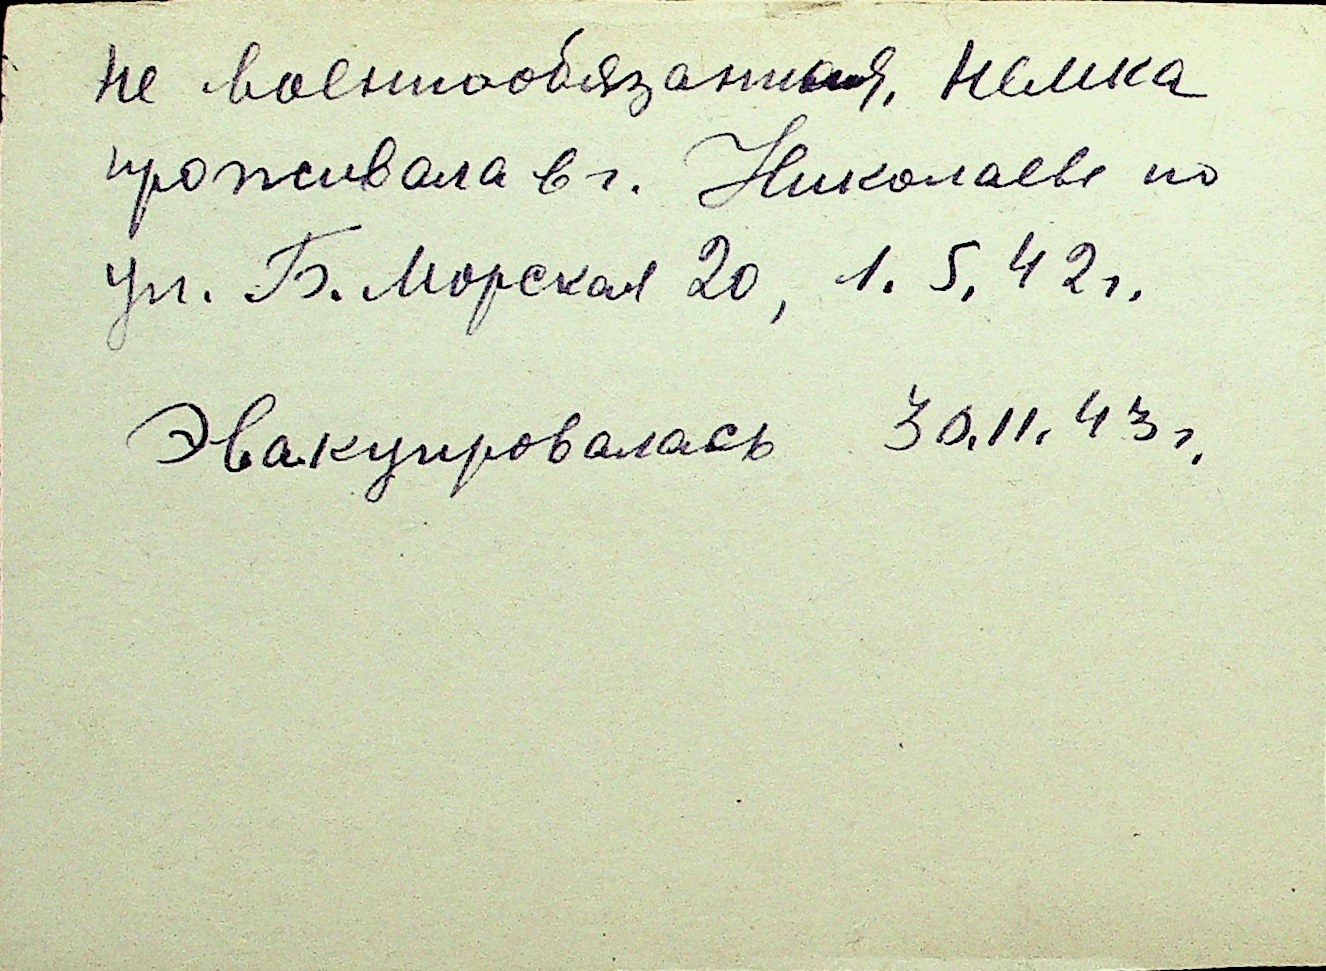 не военнообязанная, немка
проживала в г. Николаеве по
ул. Б. Морская 20, 1.5.42 г.
Эвакуировалась 30.11.43 г.